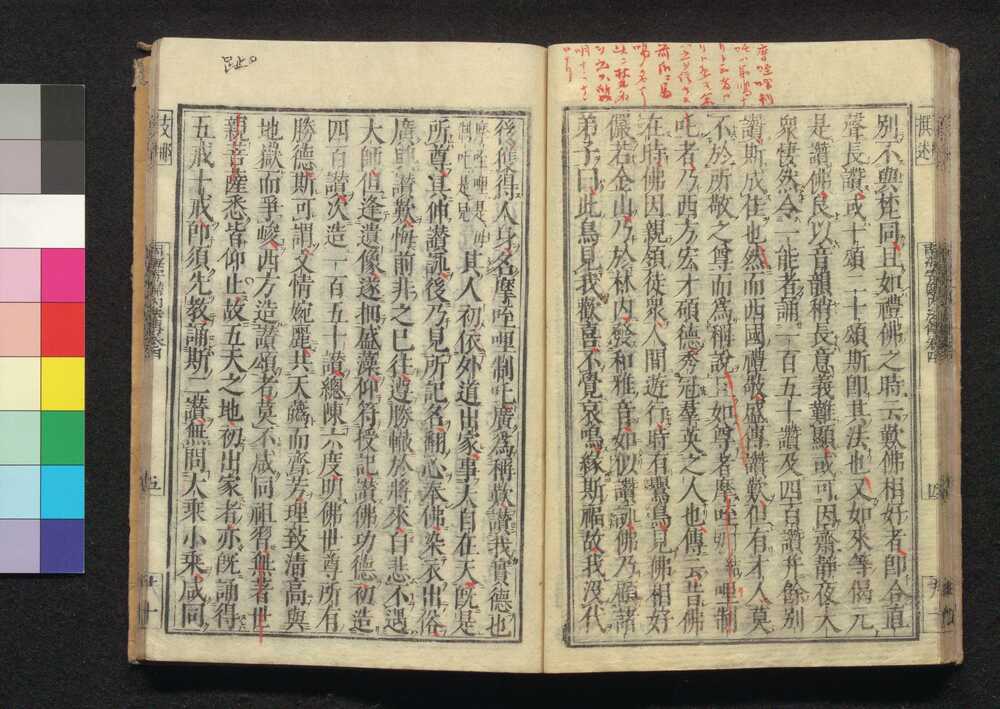 別不與梵同且如禮佛之時云歎佛相好者即合直
聲長讚或十頌二十頌斯即其法也又如來等偈元
是讚佛良以音韻稍長意義難顯或可因齋靜夜大
衆悽然令一能者誦一百五十讚及四百讚并餘別
讚斯成佳也然而西國禮敬盛傳讚歎但有才人莫
不於所敬之尊而爲稱說且如尊者摩咥哩制
吒者乃西方宏才碩德秀冠羣英之人也傳云昔佛
在時佛因親領徒衆人間遊行時有鸎鳥見佛相好
儼若金山乃於林内發和雅音如似讚詠佛乃顧諸
弟子曰此鳥見我歡喜不覺哀鳴緣斯福故我沒代
後獲得人身名摩咥哩制吒廣爲稱歎讚我實德也
摩咥哩是母
制吒是兒
其人初依外道出家事大自在天既是
所尊具伸讚詠後乃見所記名翻心奉佛染衣出俗
廣興讚歎悔前非之已往遵勝轍於將來自悲不遇
大師但逢遺像遂抽盛藻仰符授記讚佛功德初造
四百讚次造一百五十讚總陳六度明佛世尊所有
勝德斯可謂文情婉麗共天蘤而齊芳理致清高與
地嶽而爭峻西方造讚頌者莫不咸同祖習無著世
親菩薩悉皆仰止故五天之地初出家者亦既誦得
五戒十戒即須先教誦斯二讚無問大乘小乘咸同